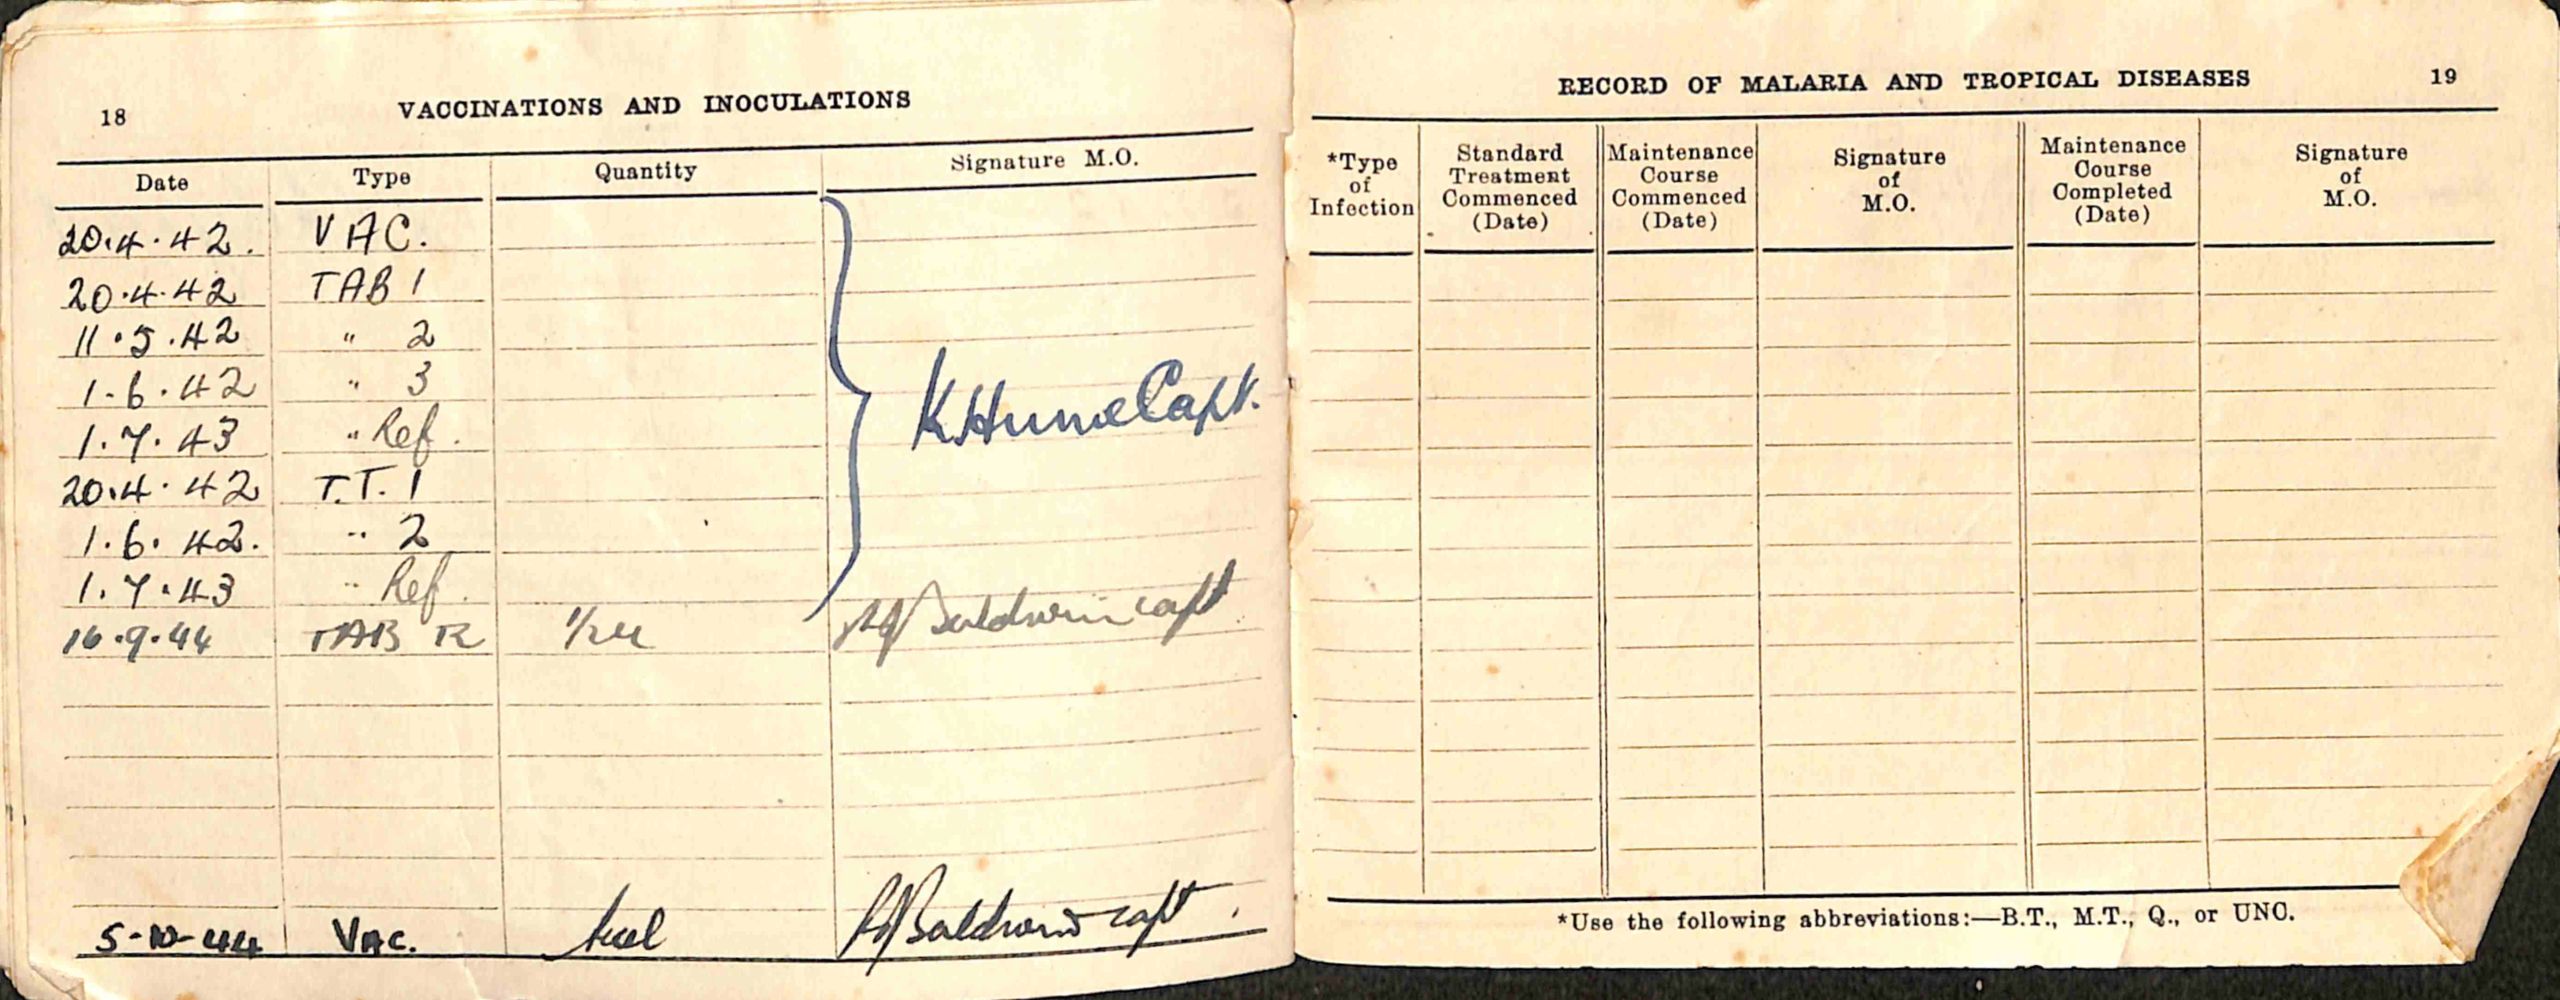 18
VACCINATIONS AND INOCULATIONS
Date Type Quantity Signature M.O.
20.4.42. VAC.
20.4.42 TAB 1
11.5.42 " 2
1.6.42 " 3
1.7.43 " Ref.
K. Hume Capt.
20.4.42 T.T. 1
1.6.42. " 2
1.7.43 " Ref.
16.9.44 TAB R 1/2 Baldwin capt
5-10-44 VAC. Baldwin capt.
RECORD OF MALARIA AND TROPICAL DISEASES
19
*Type of Infection
Standard Treatment Commenced (Date)
Maintenance Course Commenced (Date)
Signature of M.O.
Maintenance Course Completed (Date)
Signature of M.O.
*Use the following abbreviations:—B.T., M.T., Q., or UNC.